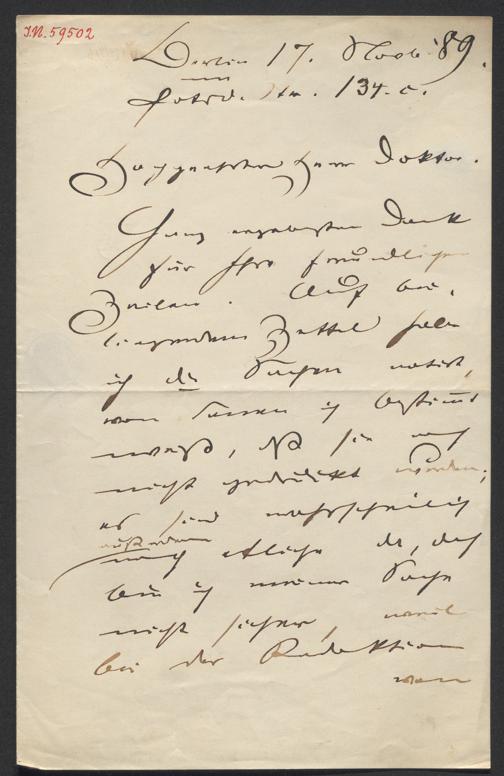 J.N. 59502
Berlin 17. Novb. 89.
Potsd. Str. 134. c.
Hochgeehrter Herr Doktor.
Ganz ergebensten Dank
für Ihre freundlichen
Zeilen. Auf bei-
liegendem Zettel habe
ich die Sachen notirt,
von denen ich bestimmt
weiß, daß sie noch
nicht gedruckt wurden;
es sind wahrscheinlich
außerdem
noch etliche da, doch
bin ich meiner Sache
nicht sicher, weil
bei der Redaktion
von